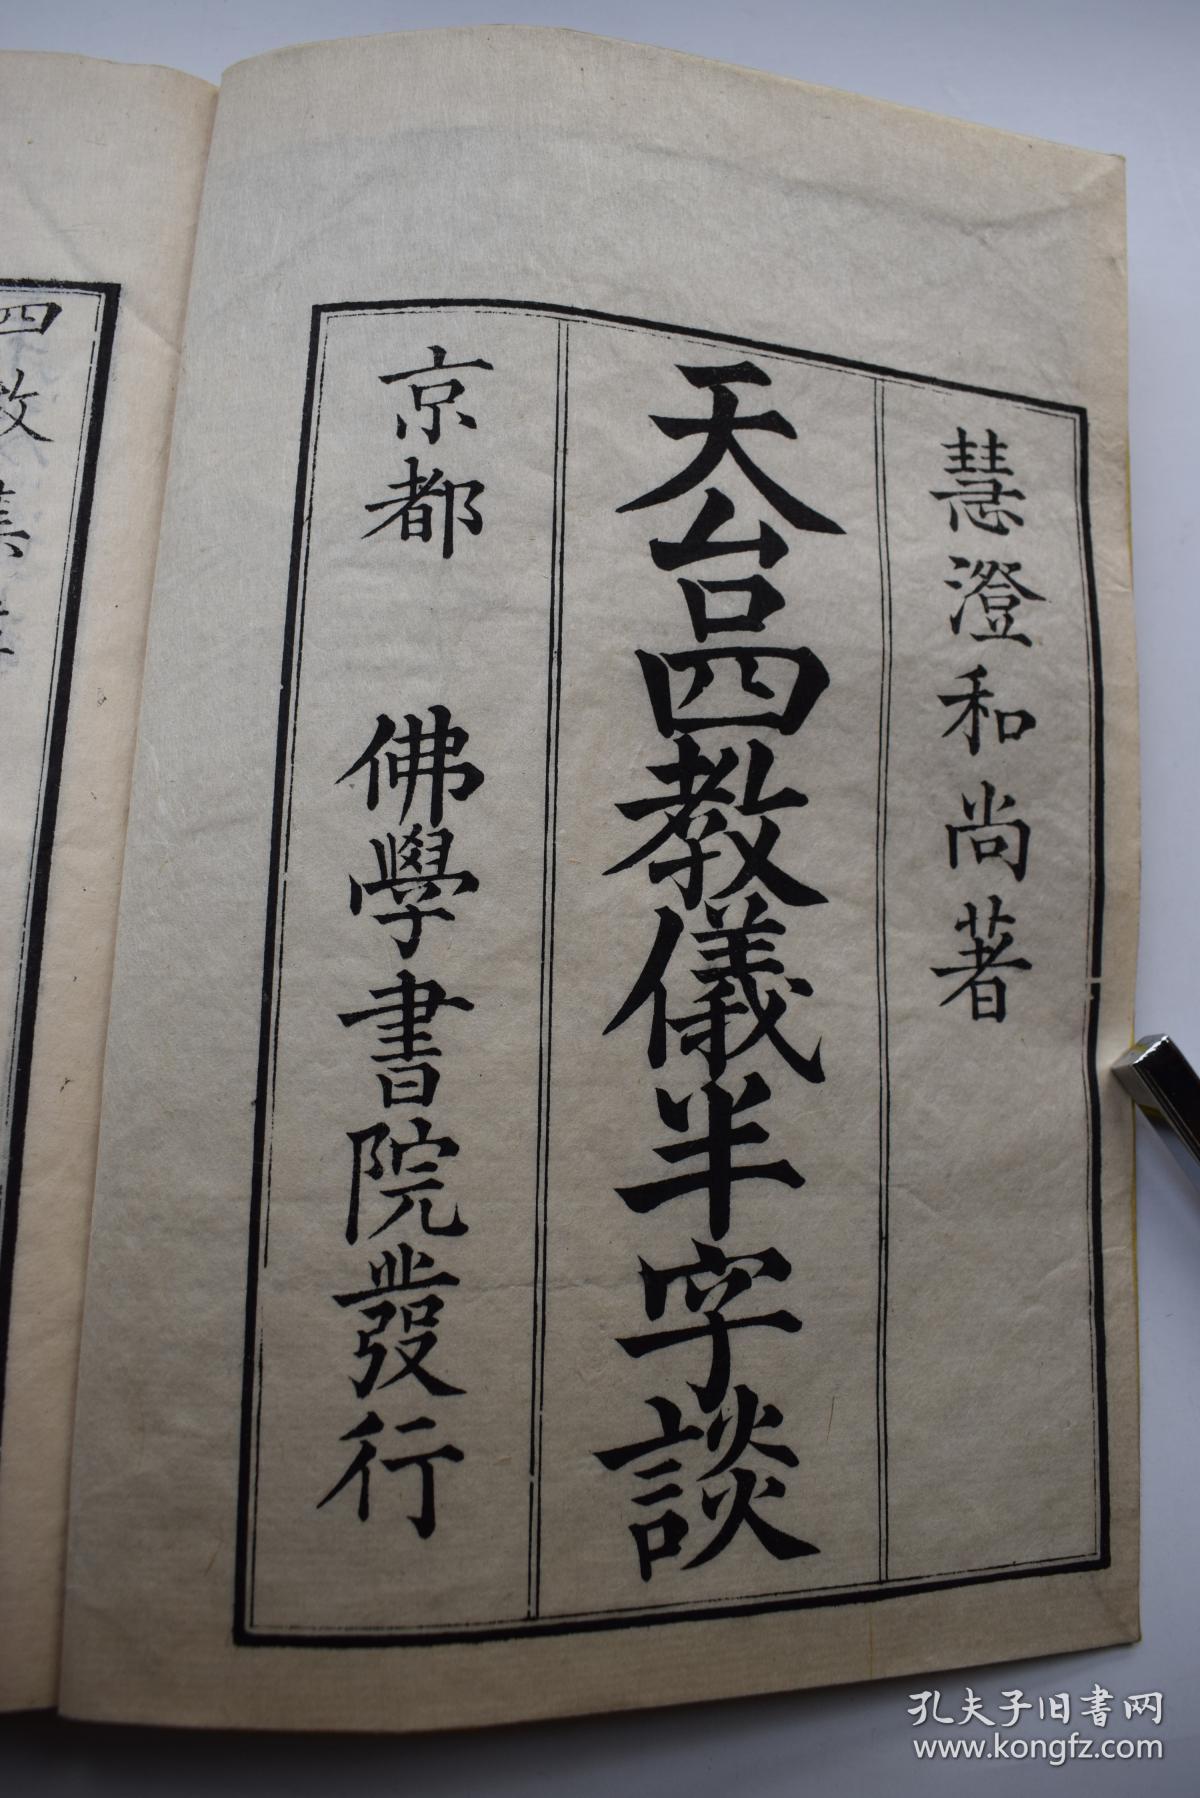 慧澄和尚著
天台四教儀半字談
京都 佛學書院發行
四教集
孔夫子旧書网
www.kongfz.com